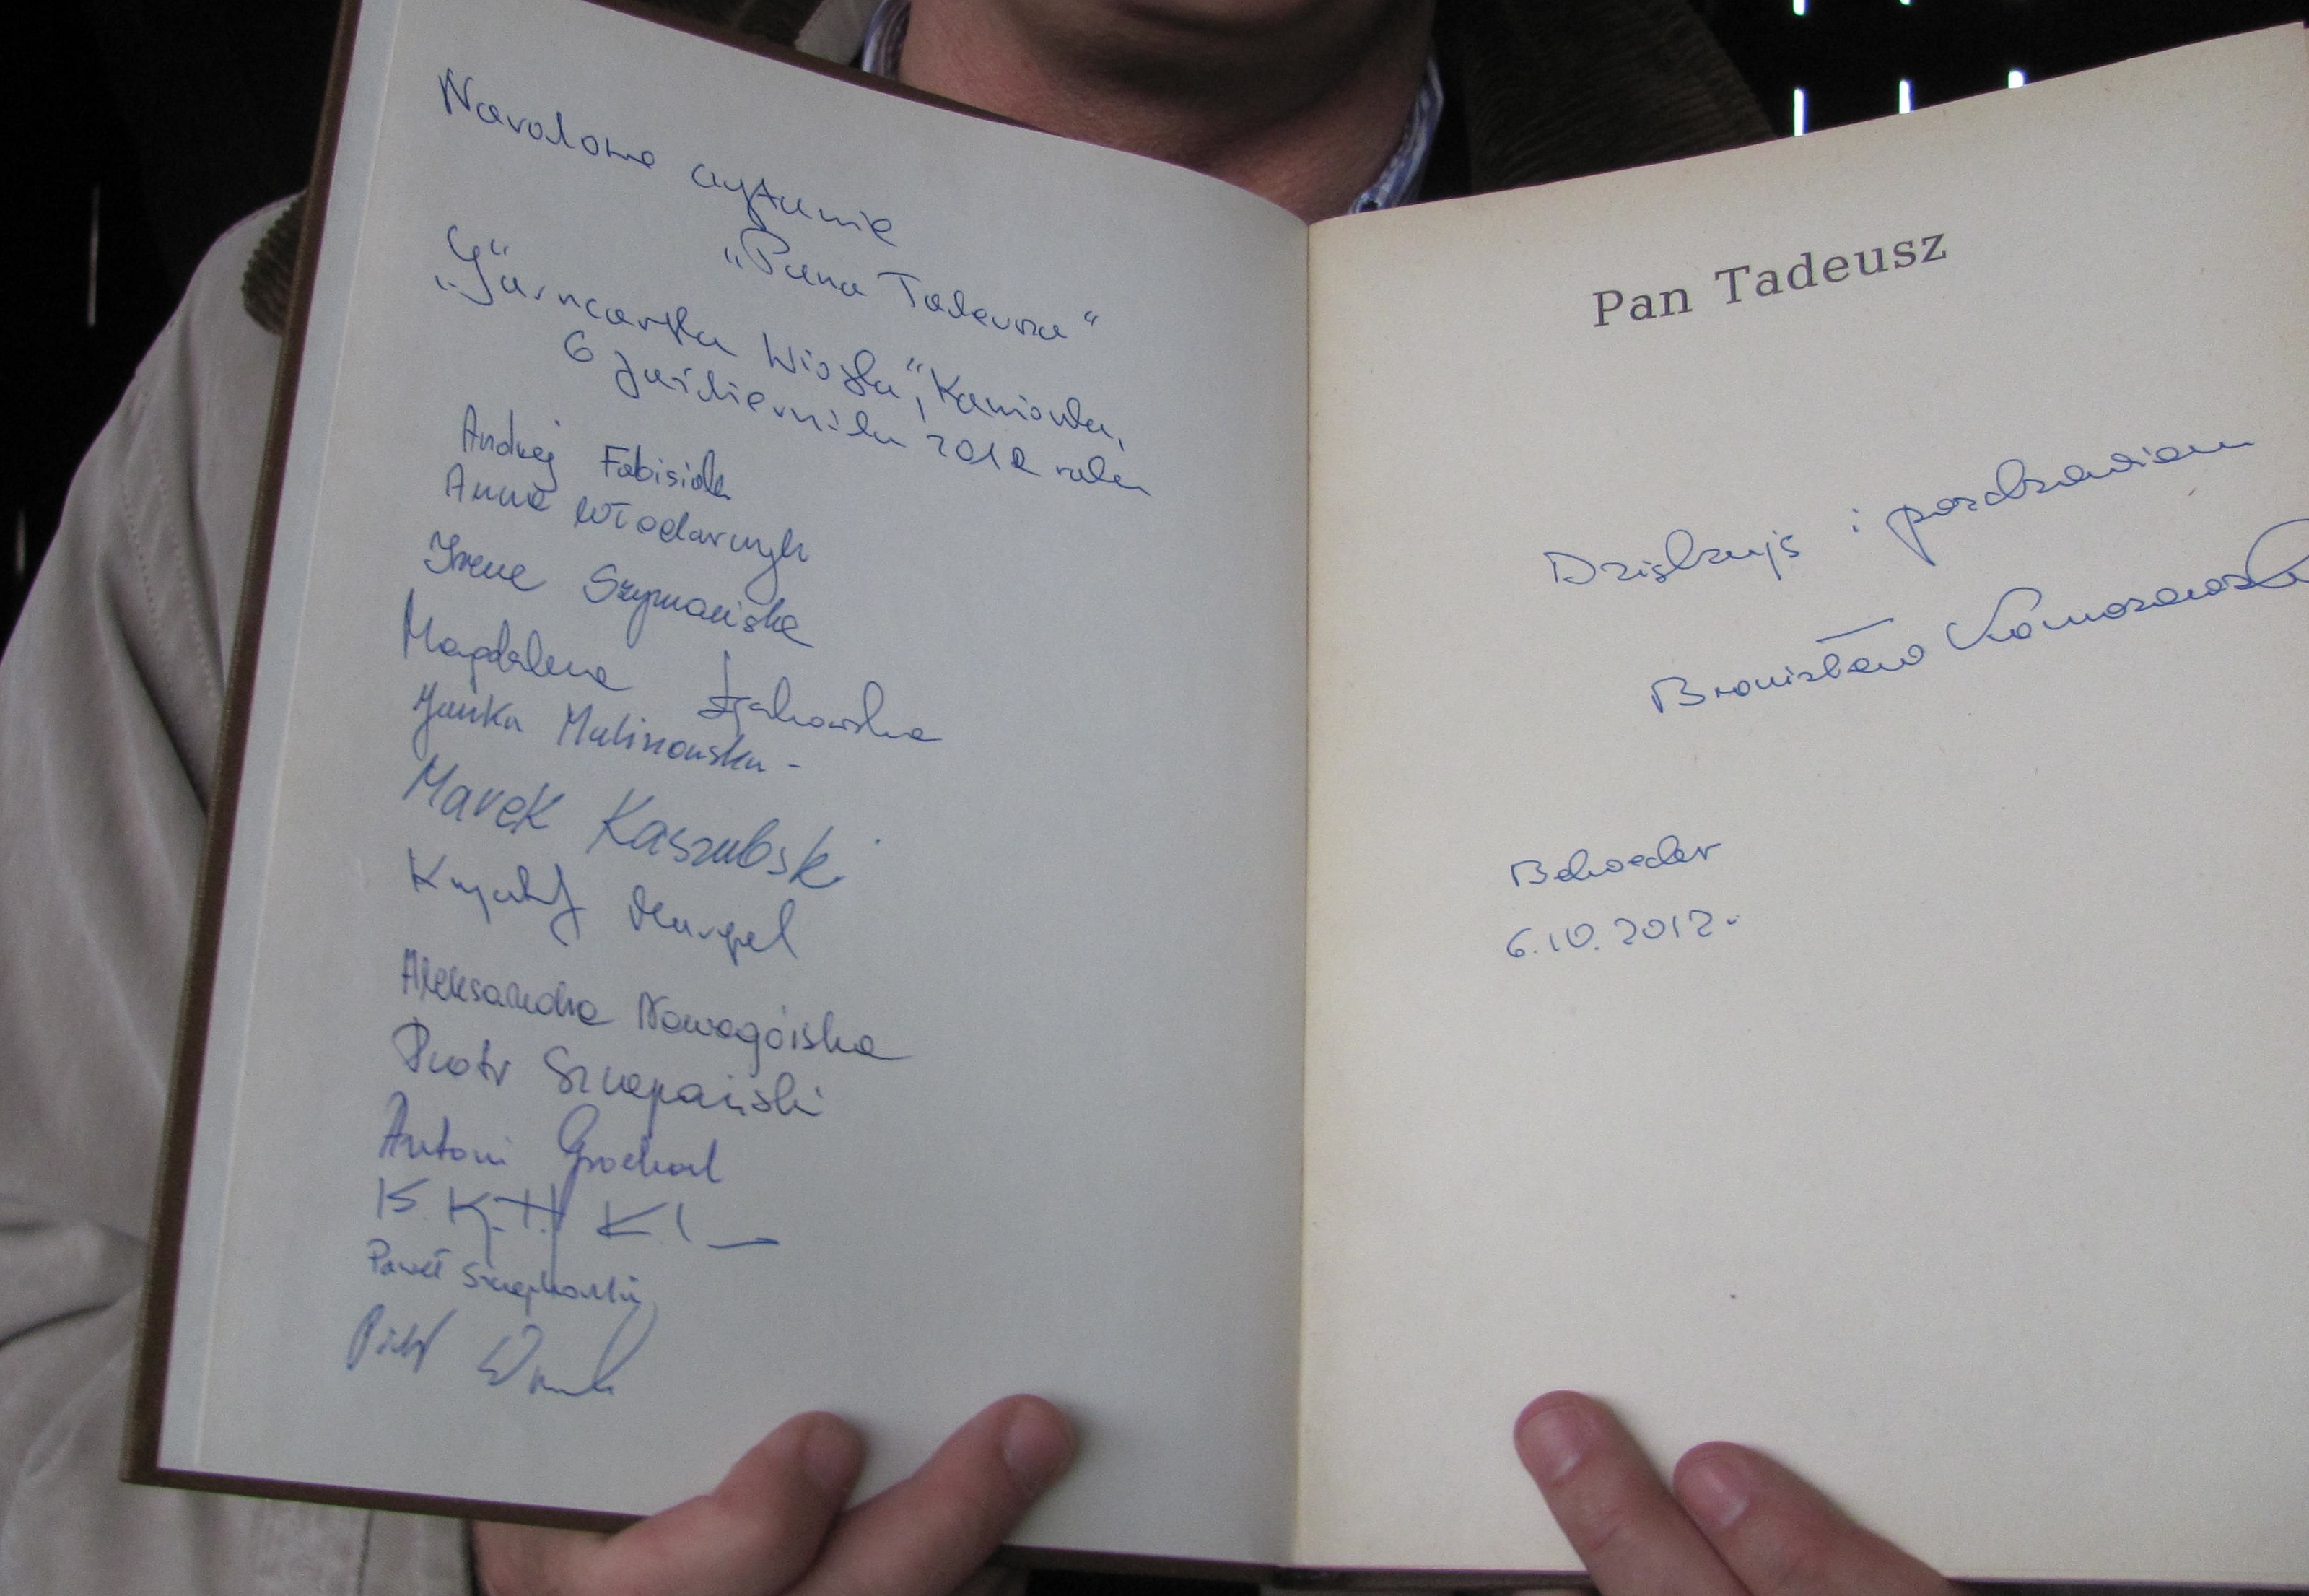 Narodowe czytanie
„Pana Tadeusza“
„Garncarska Wioska“, Kamionka,
6 października 2012 roku
Andrzej Fabisiak
Anna Włodarczyk
Irena Szymańska
Magdalena
Hanka Malinowska -
Marek Kaszubski
Krzysztof Margol
Aleksandra Nowogórska
Piotr Szczepański
Antoni Grochal
Paweł Szczepkowski
Piotr
Pan Tadeusz
Dziękuję i pozdrawiam
Bronisław Komorowski
Belweder
6.10.2012.